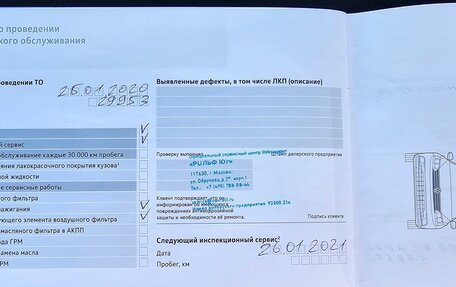 о проведении
кого обслуживания
роведении ТО
26.01.2020
29953
Выявленные дефекты, в том числе ЛКП (описание)
й сервис
бслуживание каждые 30 000 км пробега
яния лакокрасочного покрытия кузова
ной жидкости
е сервисные работы
ного фильтра
зажигания
ующего элемента воздушного фильтра
масляного фильтра в АКПП
ода ГРМ
амена масла
РМ
Проверку выполнил
Штамп дилерского предприятия
сервисный центр Volkswagen
«РОЛЬФ Юг»
117630, г. Москва,
ул. Обручева, д.27, корп.1
Тел.: +7 (495) 788-68-44
Клиент подтверждает, что он
информирован об имеющихся
повреждениях антикоррозийной
защиты и необходимости её ремонта.
предприятия 92500 21a
Подпись клиента
Следующий инспекционный сервис
Дата
26.01.2021
Пробег, км